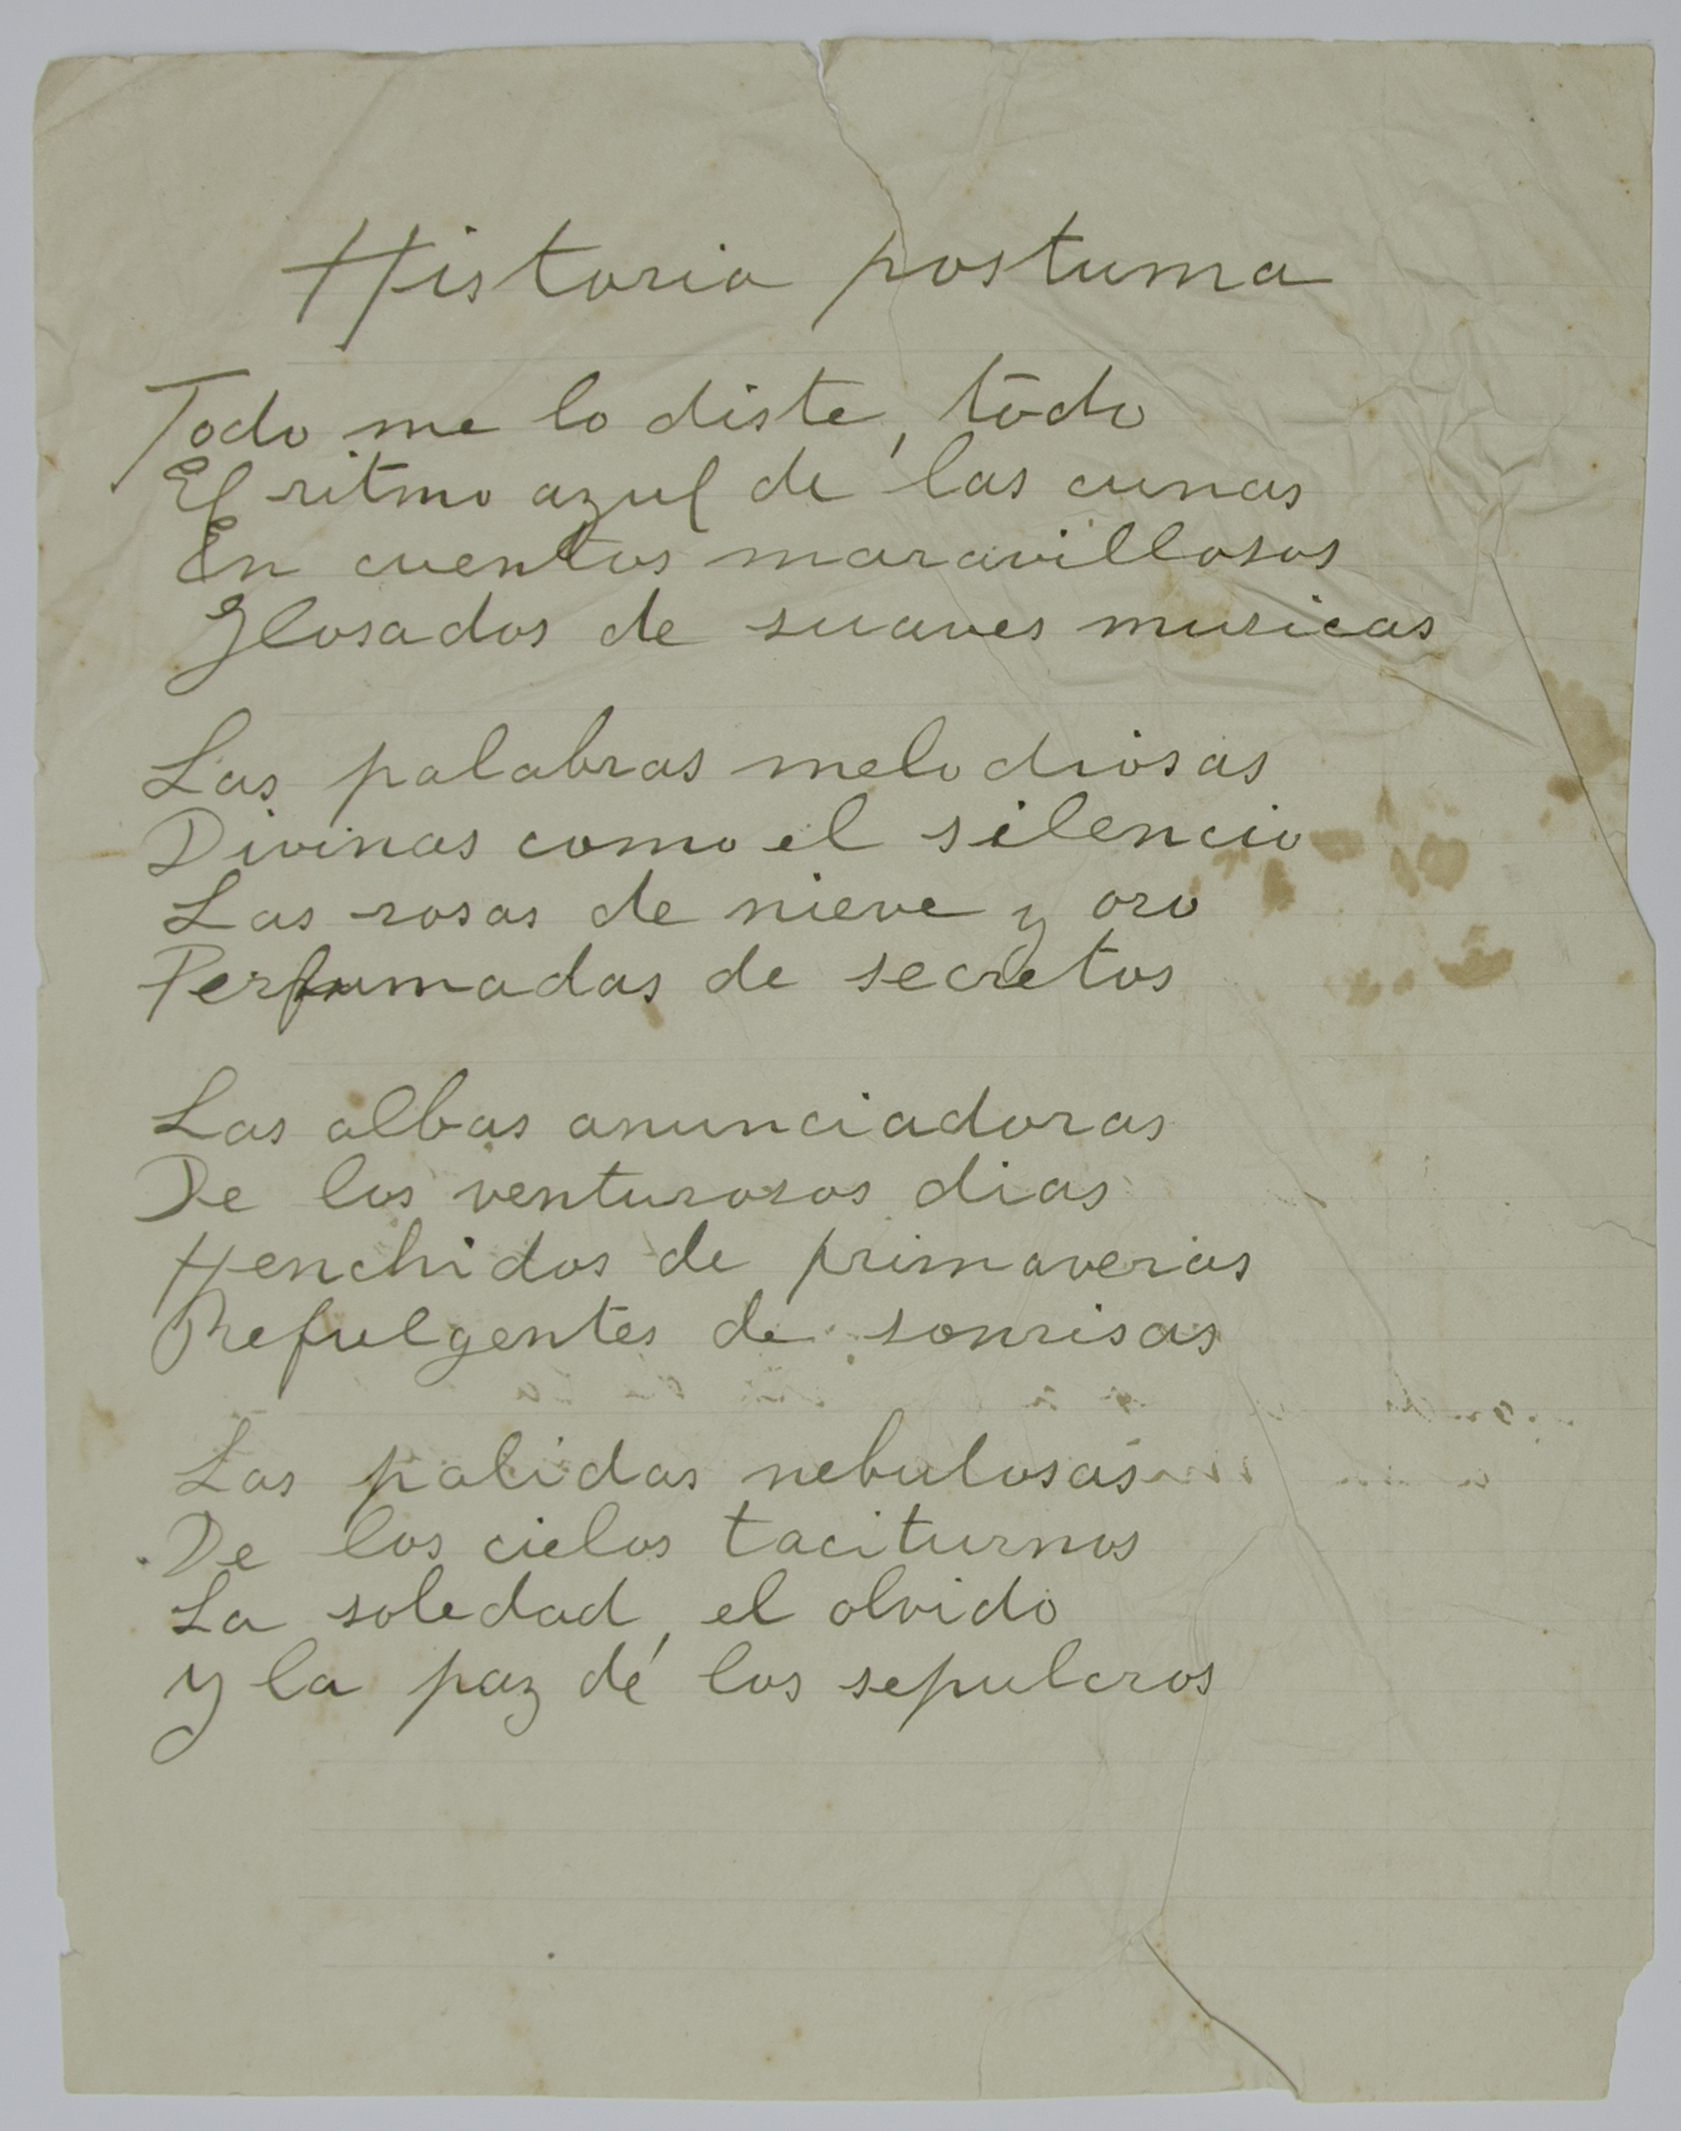 Historia postuma
Todo me lo diste, todo
El ritmo azul de las cunas
En cuentos maravillosos
Glosados de suaves musicas
Las palabras melodiosas
Divinas como el silencio
Las rosas de nieve y oro
Perfumadas de secretos
Las albas anunciadoras
De los venturosos dias
Henchidos de primaveras
Refulgentes de sonrisas
Las palidas nebulosas
De los cielos taciturnos
La soledad, el olvido
y la paz de los sepulcros